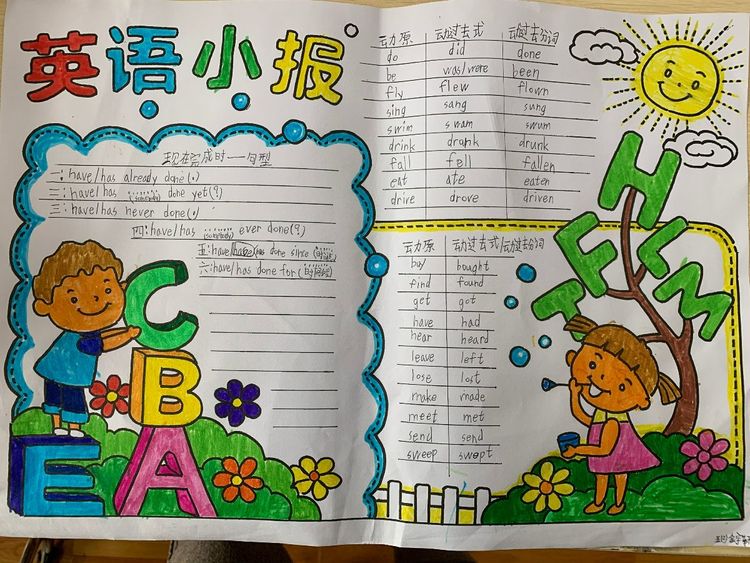 英语小报
现在完成时一句型
一: have/has already done(.)
二: have/has (somebody) done yet(?)
三: have/has never done(.)
四: have/has (somebody) ever done(?)
五: have/has done since
六: have/has done for
动力原 动过去式 动过去分词
do did done
be was/were been
fly flew flown
sing sang sung
swim swam swum
drink drank drunk
fall fell fallen
eat ate eaten
drive drove driven
动力原 动过去式/动过去分词
buy bought
find found
get got
have had
hear heard
leave left
lose lost
make made
meet met
send send
sweep swept
C
B
E A
H
L
F M
T